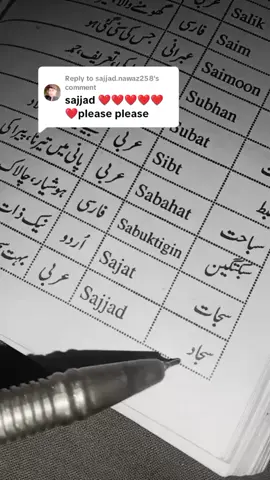 Reply to sajjad.nawaz258's
comment
sajjad ❤️❤️❤️❤️❤️
❤️please please
Salik
Saim فارسی
Saimoon عبرانی جس کی سنی گئی ہو
Subhan
Subat
Sibt عربی
Sabahat سباحت عربی پانی میں تیرنا
Sabuktigin سبکتگین فارسی ہوشیار، چالاک
Sajat سجات اُردو نیک ذات
Sajjad سجاد عربی بہت